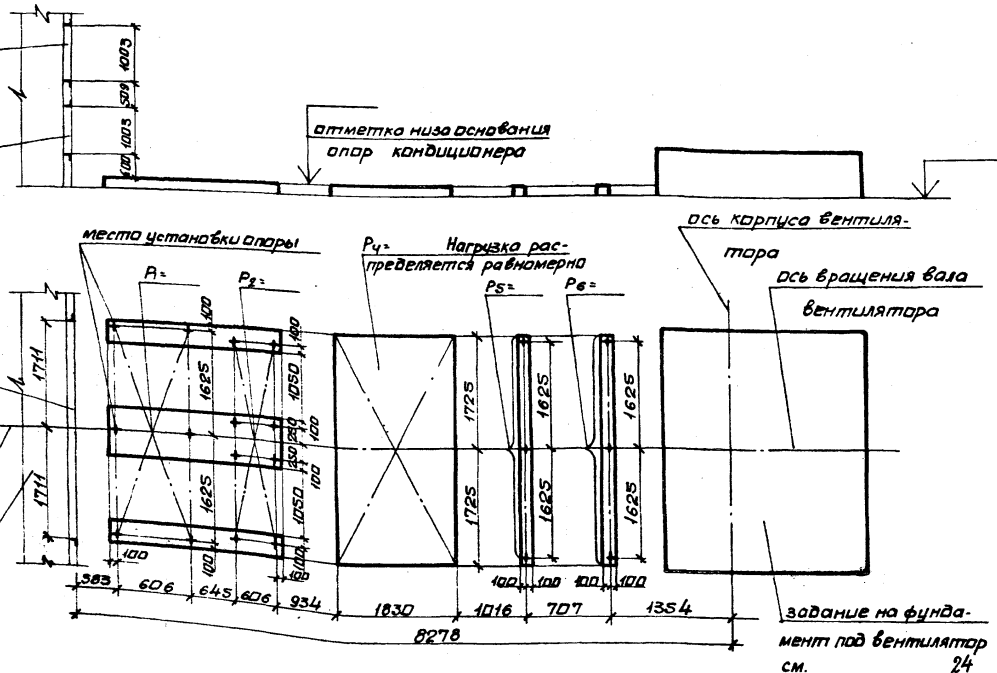 1003
509
1003
600
отметка низа основания
опор кондиционера
место установки опоры
P1=
P2=
P4= Нагрузка рас-
пределяется равномерно
P5=
P6=
ось корпуса вентиля-
тора
ось вращения вала
вентилятора
1711
1711
100
100
1625
1050
250
100
250
100
1625
1050
100
100
100
100
1725
1725
1625
1625
1625
1625
100
100
100
100
383
606
645
606
934
1830
1016
707
1354
8278
задание на фунда-
мент под вентилятор
см. 24